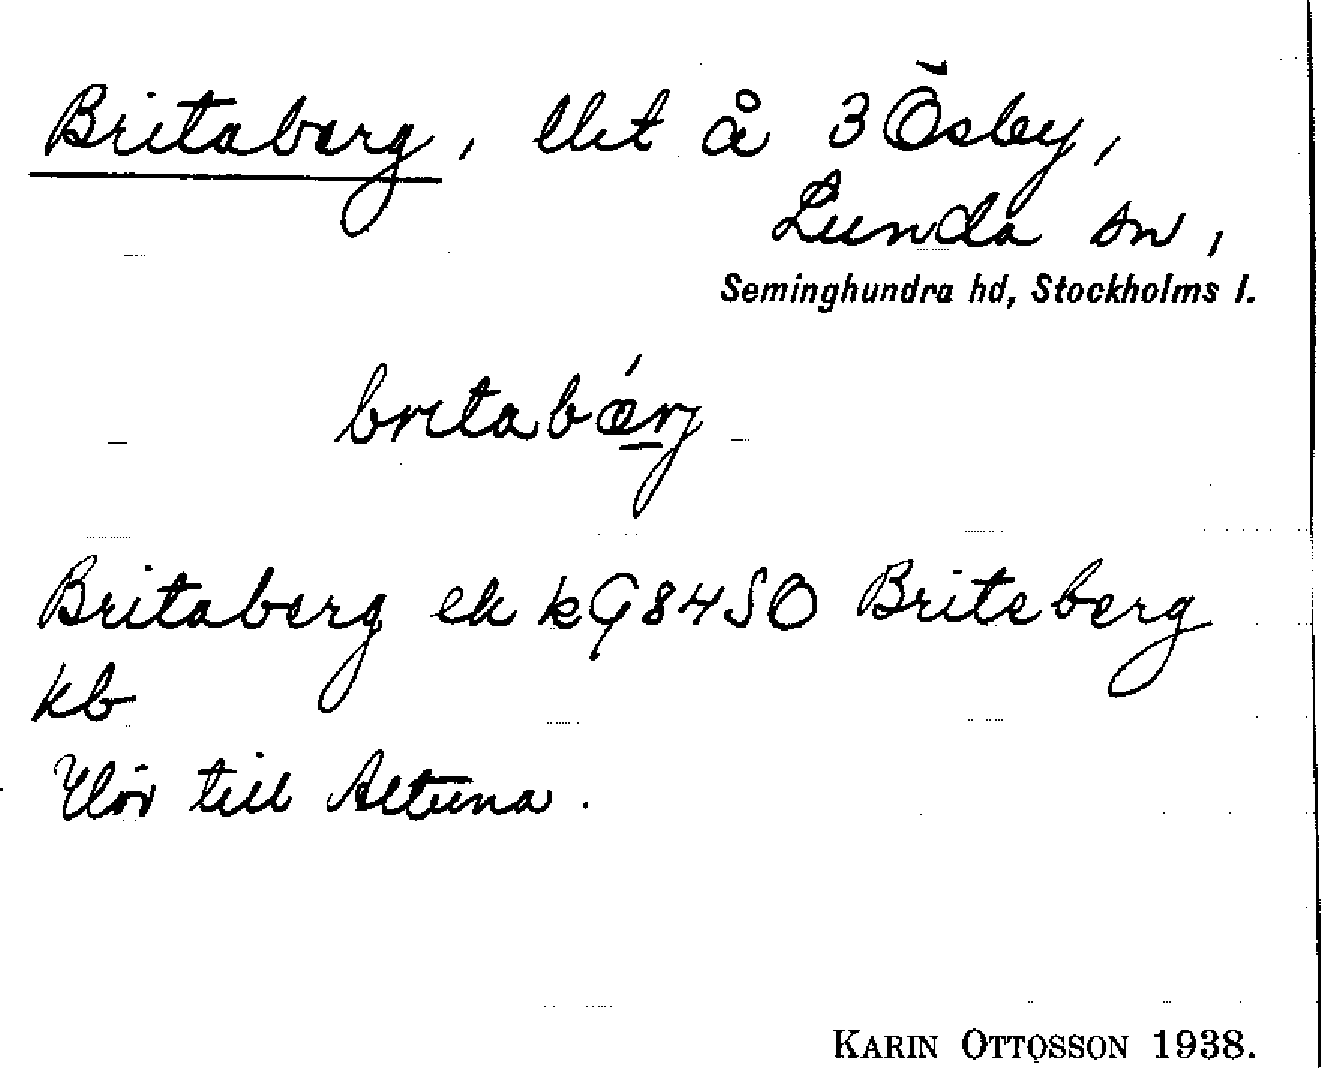 Britaberg, llet å 3 Ösby,
Lunda sn,
Seminghundra hd, Stockholms l.
britabǽrj
Britaberg ek k G84SO Briteberg
kb
Hör till Altuna.
KARIN OTTOSSON 1938.